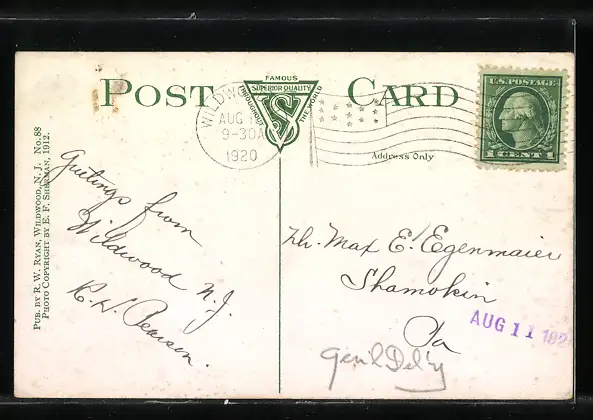 POST CARD
FAMOUS
SUPERIOR QUALITY
THROUGHOUT
THE WORLD
S
WILDWO
AUG 1
9-30A
1920
U.S. POSTAGE
1 CENT 1
Address Only
PUB. BY R. W. RYAN, WILDWOOD, N. J. No. 88
PHOTO COPYRIGHT BY E. F. SHERMAN, 1912.
Greetings from
Wildwood N.J.
K.W. Pearson.
Mr. Max E. Egenmaier
Shamokin
Pa
AUG 11 192
Gen'l Del'y